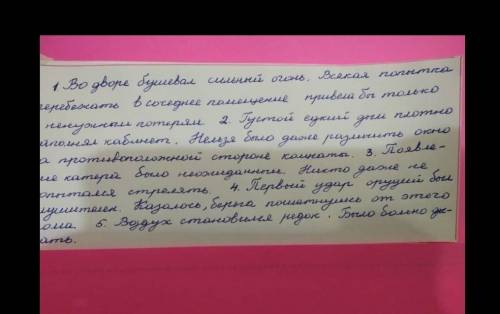 1 Во дворе бушевал сильный огонь. Всякая попытка
перебежать в соседнее помещение привела бы только
ненужным потерям 2. Густой едкий дым плотно
аполнял кабинет. Нельзя было даже различить окно
а противоположной стороне комнаты. 3. Появле-
ие катера было неожиданным. Никто даже не
опытался стрелять. 4. Первый удар орудий был
лушителен. Казалось, берега пошатнулись от этого
рома. 5. Воздух становился редок. Было больно ды-
ать.